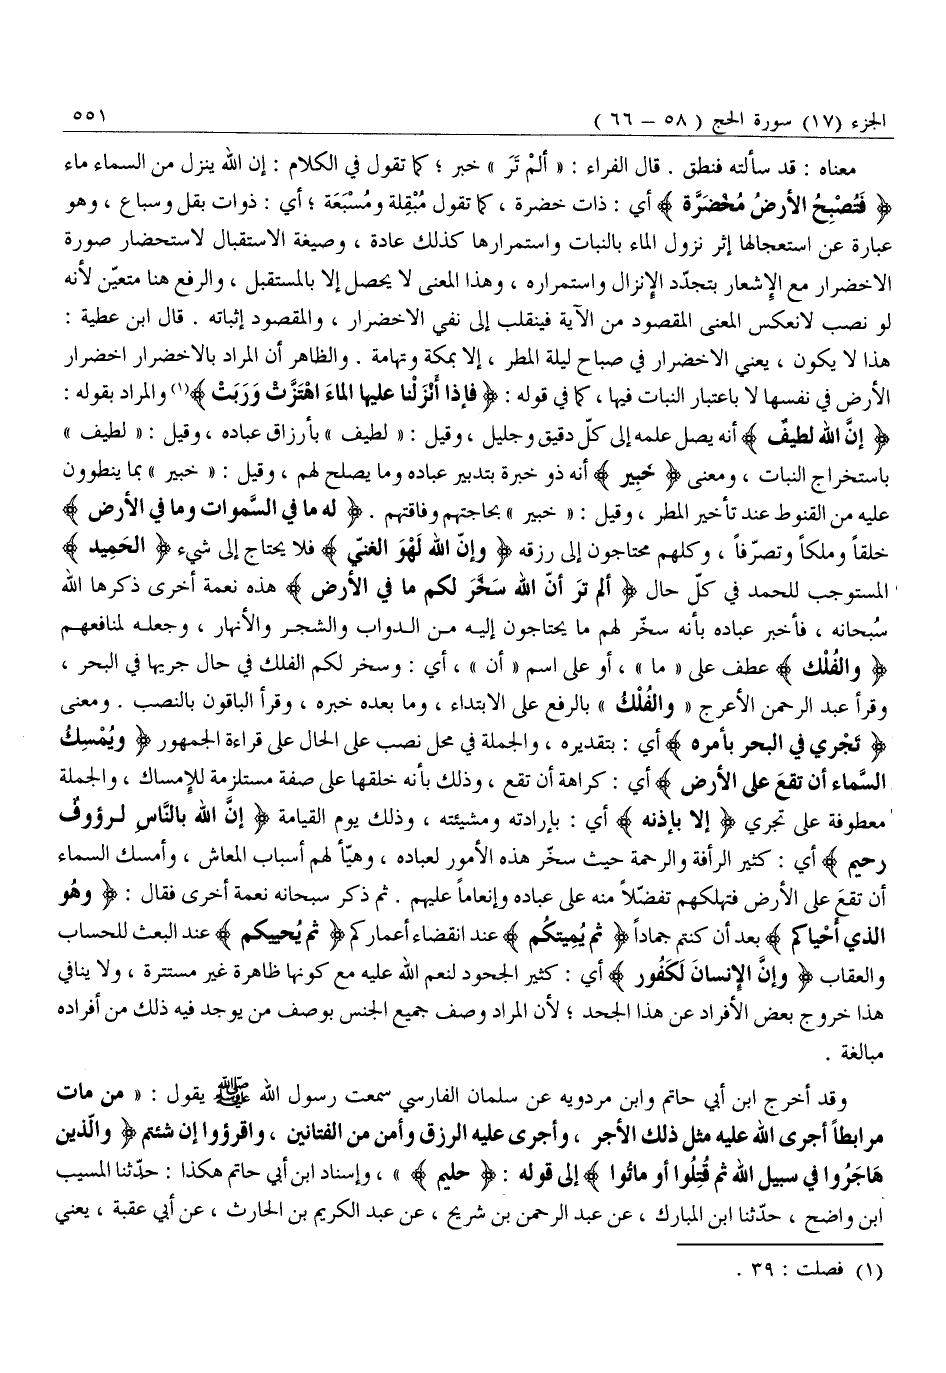 الجزء (١٧) سورة الحج ( ٥٨ – ٦٦ ) ٥٥١
معناه : قد سألته فنطق . قال الفراء : « ألمْ تَرَ » خبر ؛ كما تقول في الكلام : إن الله ينزل من السماء ماء
﴿ فَتُصْبِحُ الأرضُ مُخْضَرَّة ﴾ أي : ذات خضرة ، كما تقول مُبْقِلة ومُسْبَعَة ؛ أي : ذوات بقل وسباع ، وهو
عبارة عن استعجالها إثر نزول الماء بالنبات واستمرارها كذلك عادة ، وصيغة الاستقبال لاستحضار صورة
الاخضرار مع الإشعار بتجدّد الإنزال واستمراره ، وهذا المعنى لا يحصل إلا بالمستقبل ، والرفع هنا متعيّن لأنه
لو نصب لانعكس المعنى المقصود من الآية فينقلب إلى نفي الاخضرار ، والمقصود إثباته . قال ابن عطية :
هذا لا يكون ، يعني الاخضرار في صباح ليلة المطر ، إلا بمكة وتهامة . والظاهر أن المراد بالاخضرار اخضرار
الأرض في نفسها لا باعتبار النبات فيها ، كما في قوله : ﴿ فإذا أَنْزَلْنا عليها الماءَ اهْتَزَّتْ وَرَبَتْ ﴾(١) والمراد بقوله :
﴿ إنَّ الله لطيفٌ ﴾ أنه يصل علمه إلى كلّ دقيق وجليل ، وقيل : « لطيف » بأرزاق عباده ، وقيل : « لطيف »
باستخراج النبات ، ومعنى ﴿ خَبِير ﴾ أنه ذو خبرة بتدبير عباده وما يصلح لهم ، وقيل : « خبير » بما ينطوون
عليه من القنوط عند تأخير المطر ، وقيل : « خبير » بحاجتهم وفاقتهم . ﴿ له ما في السَّموات وما في الأرض ﴾
خلقاً وملكاً وتصرّفاً ، وكلهم محتاجون إلى رزقه ﴿ وإنّ الله لَهْوَ الغنيّ ﴾ فلا يحتاج إلى شيء ﴿ الحَمِيد ﴾
المستوجب للحمد في كلّ حال ﴿ ألم ترَ أنّ الله سَخَّرَ لكم ما في الأرض ﴾ هذه نعمة أخرى ذكرها الله
سُبحانه ، فأخبر عباده بأنه سخّر لهم ما يحتاجون إليه من الدواب والشجر والأنهار ، وجعله لمنافعهم
﴿ والفُلْك ﴾ عطف على « ما » ، أو على اسم « أن » ، أي : وسخر لكم الفلك في حال جريها في البحر ،
وقرأ عبد الرحمن الأعرج « والفُلْكُ » بالرفع على الابتداء ، وما بعده خبره ، وقرأ الباقون بالنصب . ومعنى
﴿ تَجْري في البحر بأمره ﴾ أي : بتقديره ، والجملة في محل نصب على الحال على قراءة الجمهور ﴿ ويُمْسِكُ
السَّماء أن تقعَ على الأرض ﴾ أي : كراهة أن تقع ، وذلك بأنه خلقها على صفة مستلزمة للإمساك ، والجملة
معطوفة على تجري ﴿ إلا بإذنه ﴾ أي : بإرادته ومشيئته ، وذلك يوم القيامة ﴿ إنَّ الله بالنَّاسِ لرؤوفٌ
رحيم ﴾ أي : كثير الرأفة والرحمة حيث سخّر هذه الأمور لعباده ، وهيّأ لهم أسباب المعاش ، وأمسك السماء
أن تقعَ على الأرض فتهلكهم تفضّلاً منه على عباده وإنعاماً عليهم . ثم ذكر سبحانه نعمة أخرى فقال : ﴿ وهُو
الذي أحْياكم ﴾ بعد أن كنتم جماداً ﴿ ثم يُمِيتكُم ﴾ عند انقضاء أعماركم ﴿ ثم يُحييكم ﴾ عند البعث للحساب
والعقاب ﴿ وإنَّ الإنسانَ لَكَفُور ﴾ أي : كثير الجحود لنعم الله عليه مع كونها ظاهرة غير مستترة ، ولا ينافي
هذا خروج بعض الأفراد عن هذا الجحد ؛ لأن المراد وصف جميع الجنس بوصف من يوجد فيه ذلك من أفراده
مبالغة .
وقد أخرج ابن أبي حاتم وابن مردويه عن سلمان الفارسي سمعت رسول الله ﷺ يقول : « من مات
مرابطاً أجرى الله عليه مثل ذلك الأجر ، وأجرى عليه الرزق وأمن من الفتانين ، واقرؤوا إن شئتم ﴿ والّذين
هَاجَرُوا في سبيل الله ثم قُتِلُوا أو ماتُوا ﴾ إلى قوله : ﴿ حليم ﴾ » ، وإسناد ابن أبي حاتم هكذا : حدّثنا المسيب
ابن واضح ، حدّثنا ابن المبارك ، عن عبد الرحمن بن شريح ، عن عبد الكريم بن الحارث ، عن أبي عقبة ، يعني
(١) فصلت : ٣٩ .